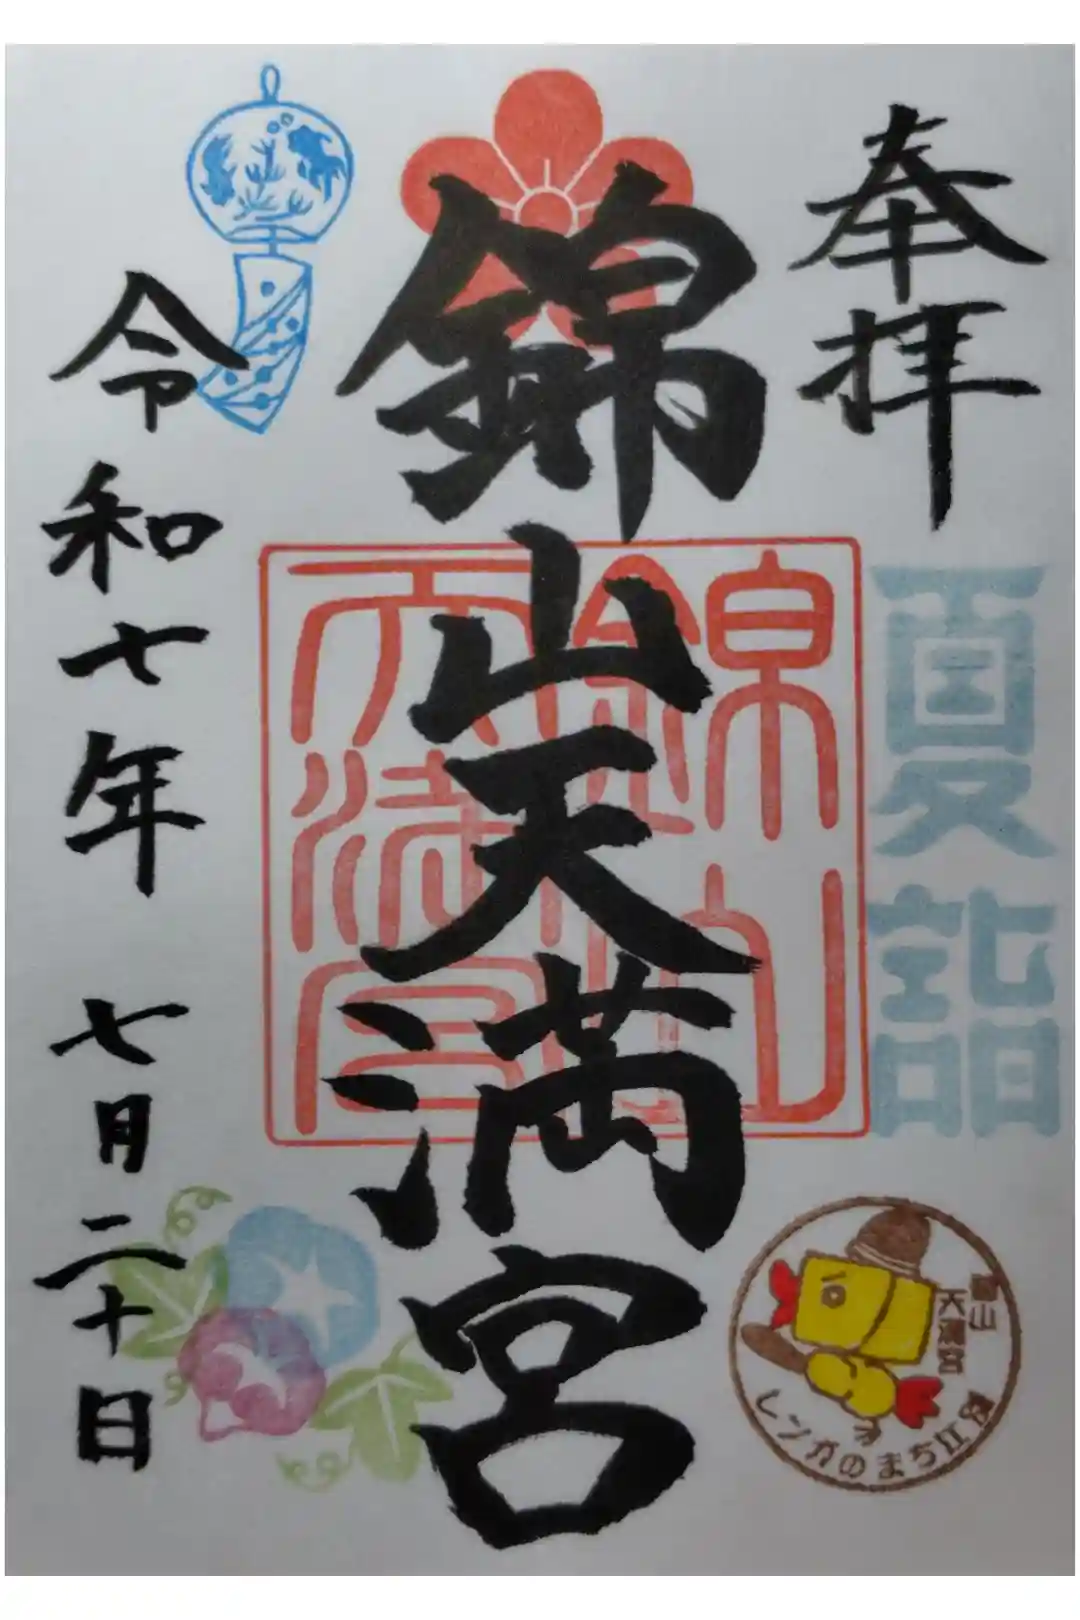 奉拝
夏詣
錦山天満宮
錦山
天満宮
錦山
天満宮
レンガのまち江別
令和七年 七月二十日